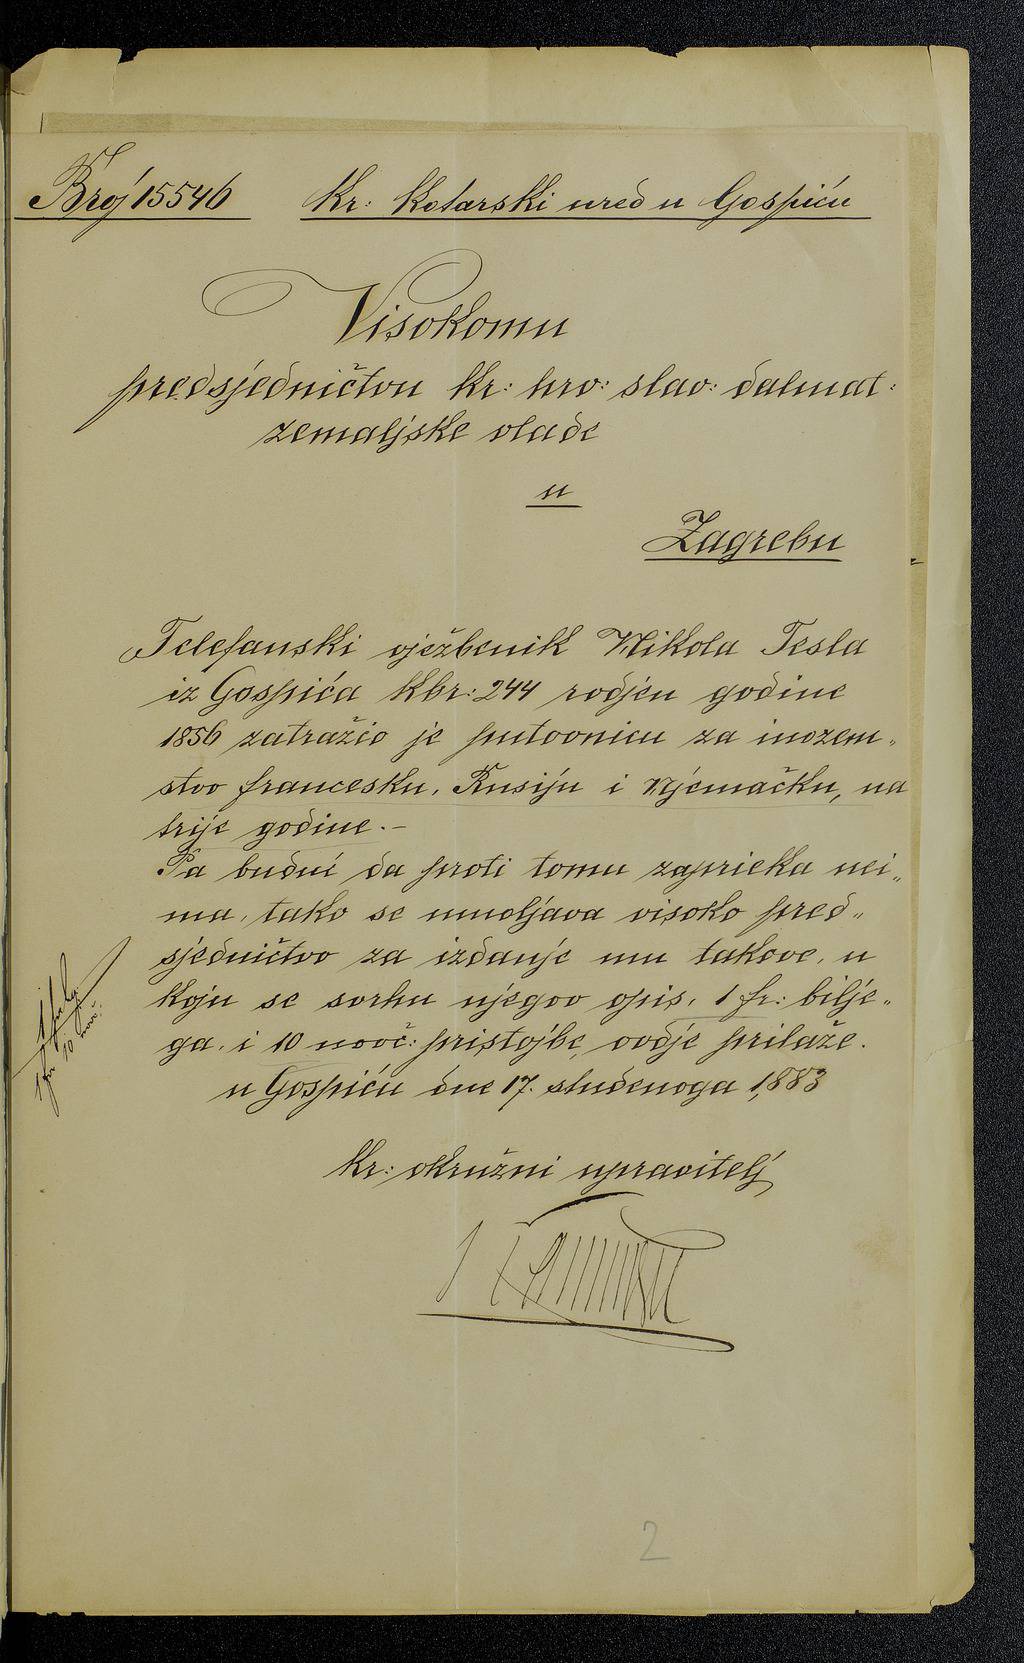 Broj 15546 Kr: Kotarski ured u Gospiću
Visokomu
predsjedničtvu kr: hrv: slav: dalmat:
zemaljske vlade
u
Zagrebu
Telefanski vježbenik Nikola Tesla
iz Gospića Kbr: 244 rodjen godine
1856 zatražio je putovnicu za inozem„
stvo francesku, Rusiju i Njemačku, na
trije godine.–
Pa budući da proti tomu zaprieka nei„
ma, tako se umoljava visoko pred„
sjedničtvo za izdanje mu takove, u
Koju se svrhu njegov opis, 1 fr: bilje„
ga, i 10 novč: pristojbe, ovdje prilaže.
u Gospiću dne 17. studenoga 1883
kr: okružni upravitelj
2